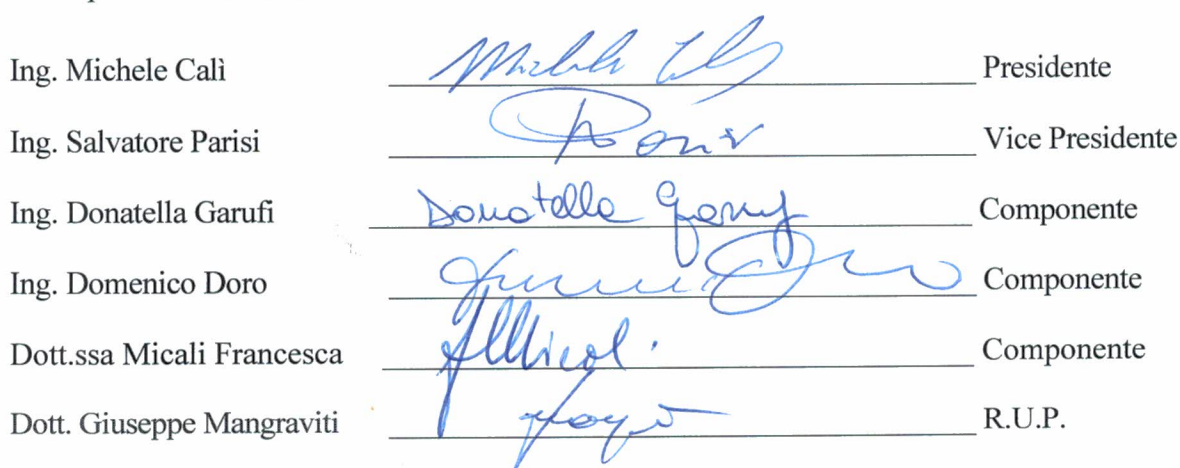 Ing. Michele Calì Presidente
Ing. Salvatore Parisi Vice Presidente
Ing. Donatella Garufi Donatella Componente
Ing. Domenico Doro Componente
Dott.ssa Micali Francesca Componente
Dott. Giuseppe Mangraviti R.U.P.